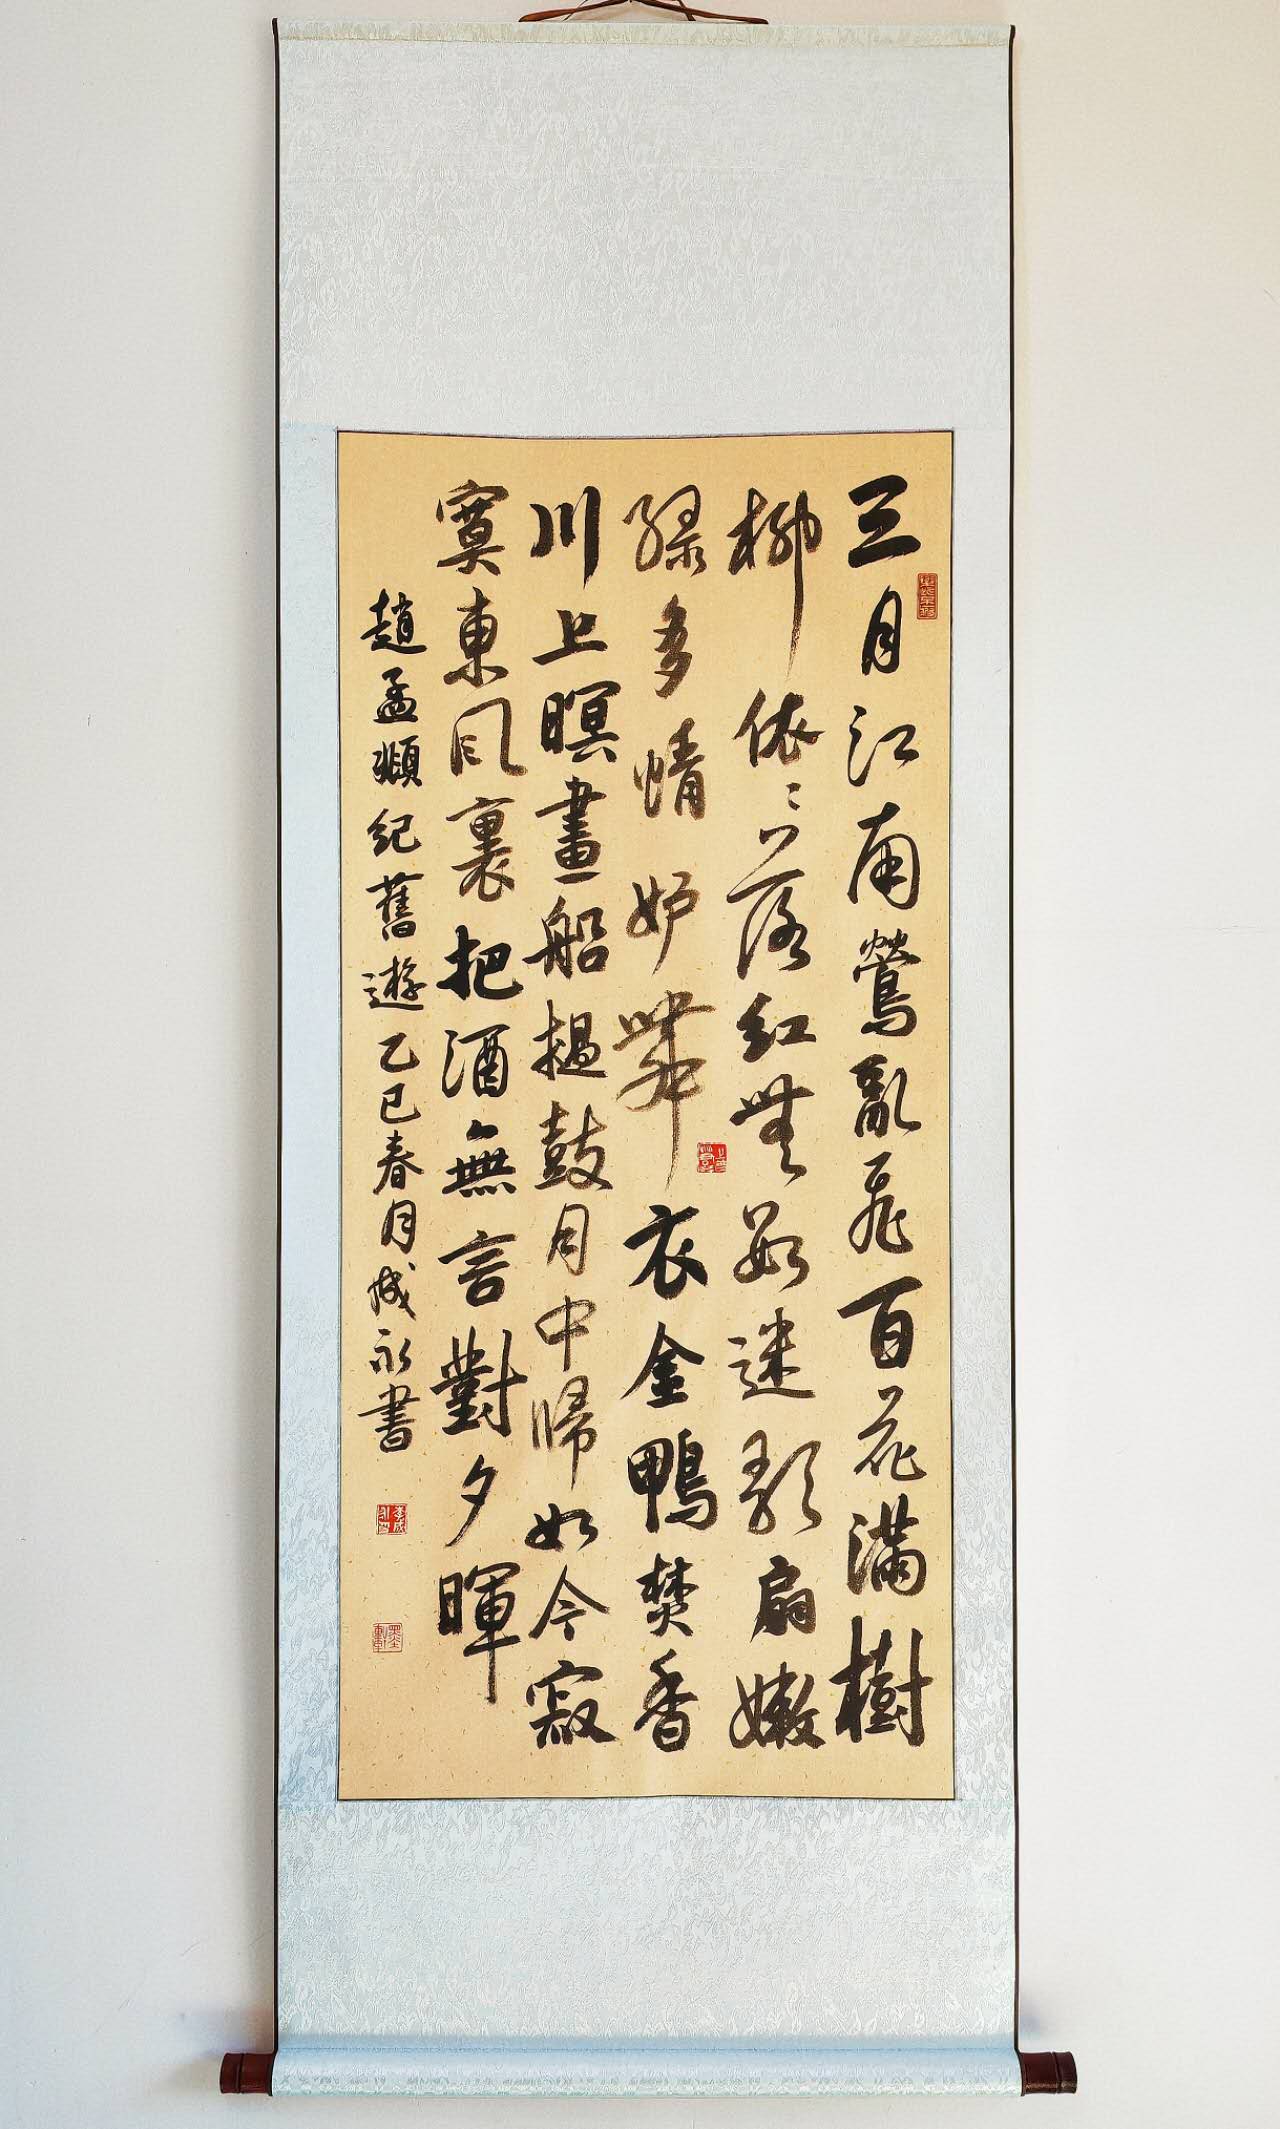 三月江南鶯亂飛百花滿樹
柳依〻落紅無數迷歌扇嫩
綠多情妒舞衣金鴨焚香
川上暝畫船撾鼓月中歸如今寂
寞東風裏把酒無言對夕暉
趙孟頫紀舊遊乙巳春月成永書